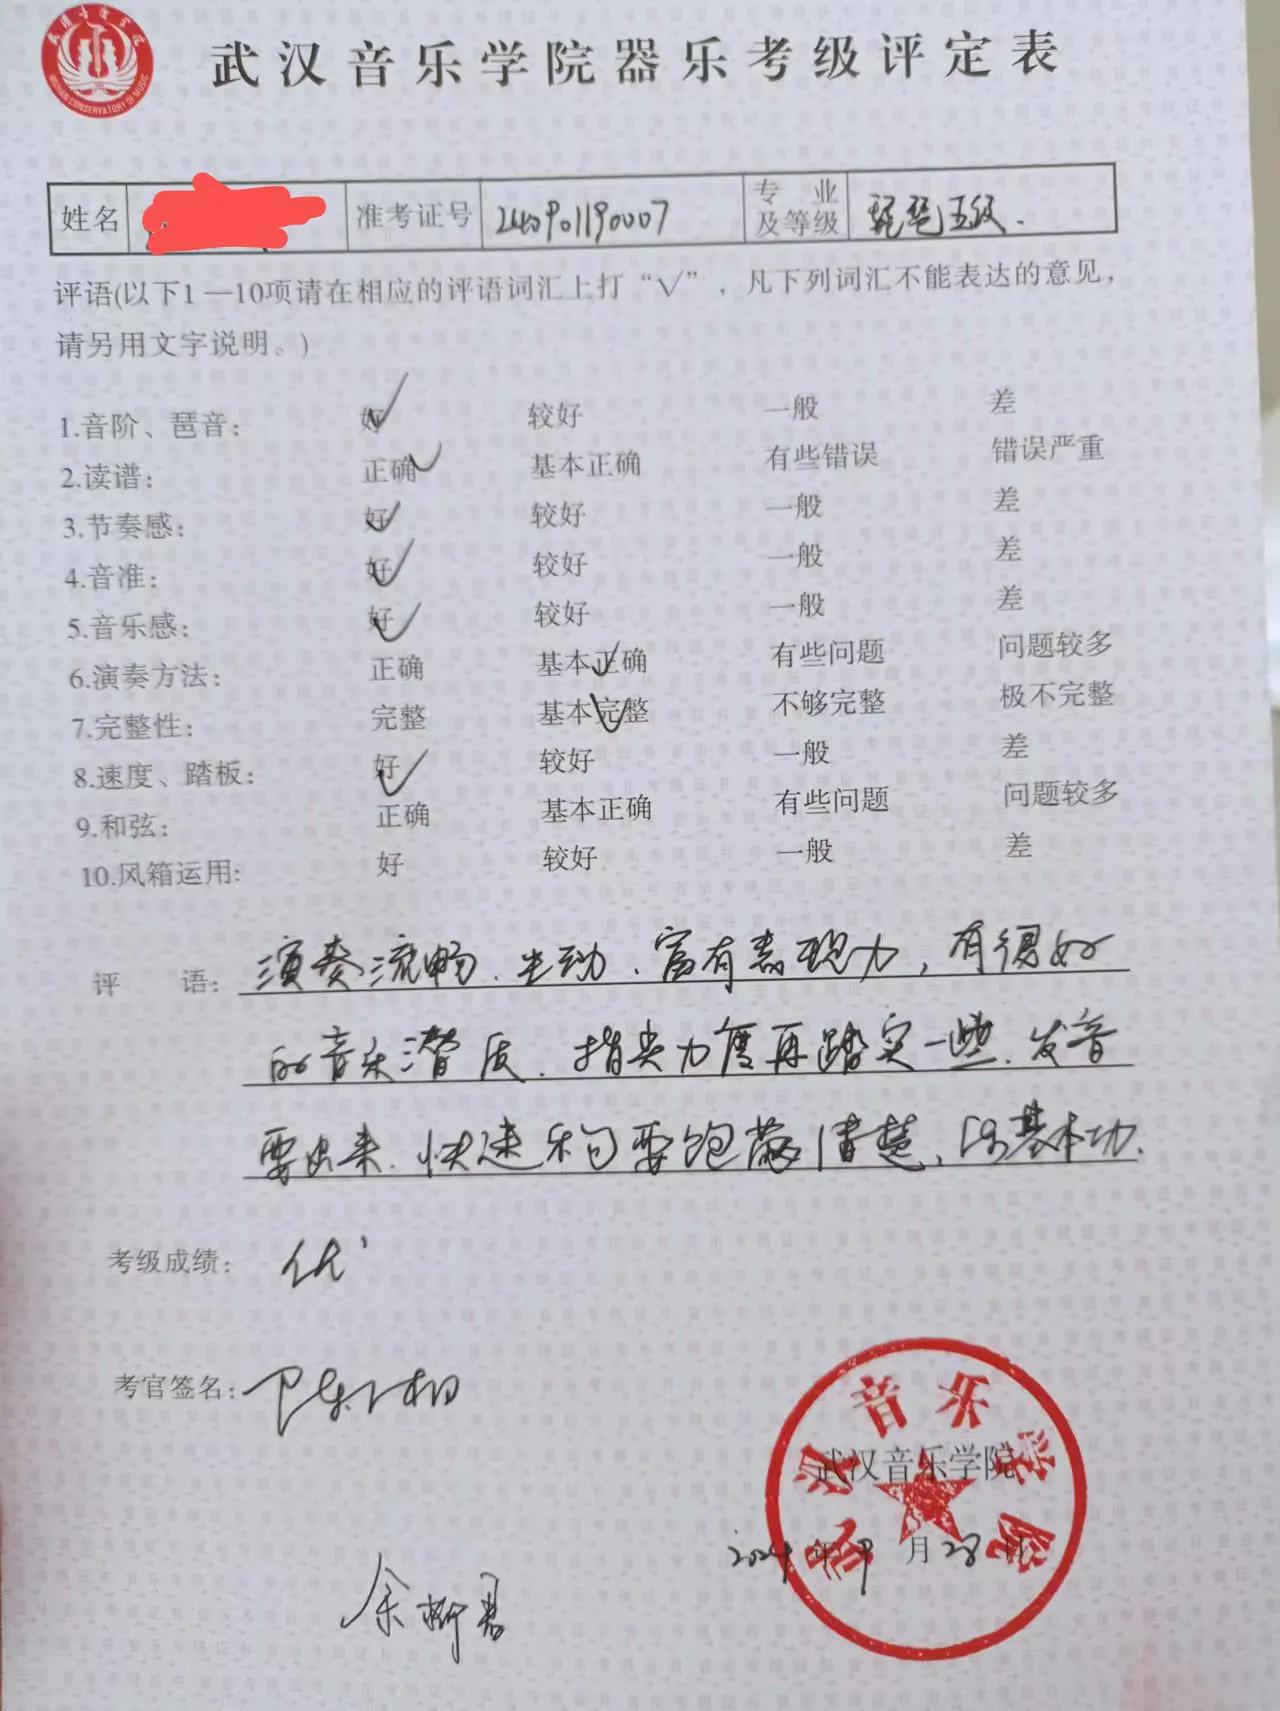 武汉音乐学院器乐考级评定表
WUHAN CONSERVATORY OF MUSIC
姓名 准考证号 240901190007 专业及等级 琵琶五级.
评语(以下1—10项请在相应的评语词汇上打“√”, 凡下列词汇不能表达的意见,
请另用文字说明。)
1.音阶、琶音: 好 ✓ 较好 一般 差
2.读谱: 正确 ✓ 基本正确 有些错误 错误严重
3.节奏感: 好 ✓ 较好 一般 差
4.音准: 好 ✓ 较好 一般 差
5.音乐感: 好 ✓ 较好 一般 差
6.演奏方法: 正确 基本正确 ✓ 有些问题 问题较多
7.完整性: 完整 基本完整 ✓ 不够完整 极不完整
8.速度、踏板: 好 ✓ 较好 一般 差
9.和弦: 正确 基本正确 有些问题 问题较多
10.风箱运用: 好 较好 一般 差
评 语: 演奏流畅、生动、富有表现力, 有很好
的音乐潜质. 指尖力度再踏实一些. 发音
要出来. 快速乐句要饱满清楚, 基本功.
考级成绩: 优
考官签名:
武汉音乐学院
武汉音乐学院
2024年9月28日
余